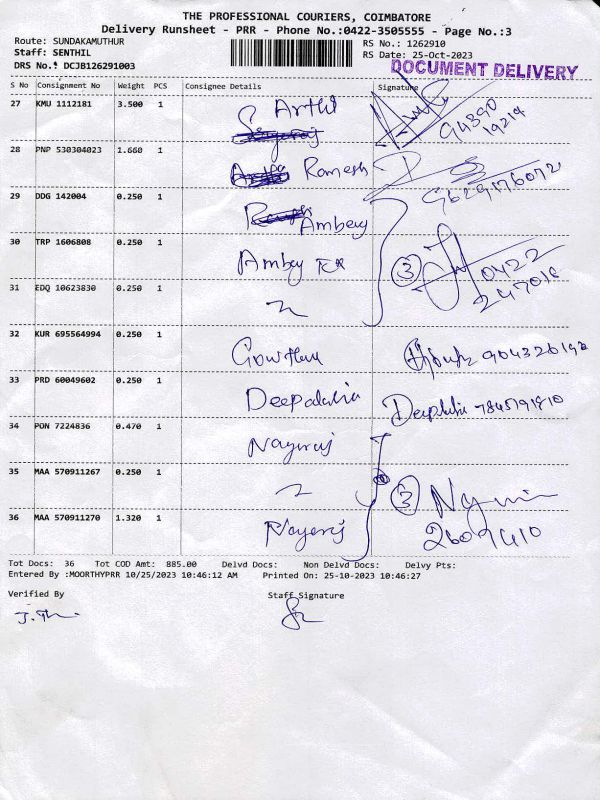 THE PROFESSIONAL COURIERS, COIMBATORE
Delivery Runsheet - PRR - Phone No.:0422-3505555 - Page No.:3
Route: SUNDAKAMUTHUR
RS No.: 1262910
Staff: SENTHIL
RS Date: 25-Oct-2023
DRS No.: DCJB126291003
DOCUMENT DELIVERY
S No Consignment No Weight PCS Consignee Details Signature
27 KMU 1112181 3.500 1 Arthi
94390
19214
28 PNP 530304023 1.660 1 Ramesh
9629176072
29 DDG 142004 0.250 1 Ambey
30 TRP 1606808 0.250 1 Ambey 3 0422
31 EDQ 10623830 0.250 1
32 KUR 695564994 0.250 1 Gowtham
33 PRD 60049602 0.250 1 7845791810
34 PON 7224836 0.470 1 Nagaraj
35 MAA 570911267 0.250 1 3
36 MAA 570911270 1.320 1 Nagaraj
Tot Docs: 36 Tot COD Amt: 885.00 Delvd Docs: Non Delvd Docs: Delvy Pts:
Entered By :MOORTHYPRR 10/25/2023 10:46:12 AM Printed On: 25-10-2023 10:46:27
Verified By Staff Signature